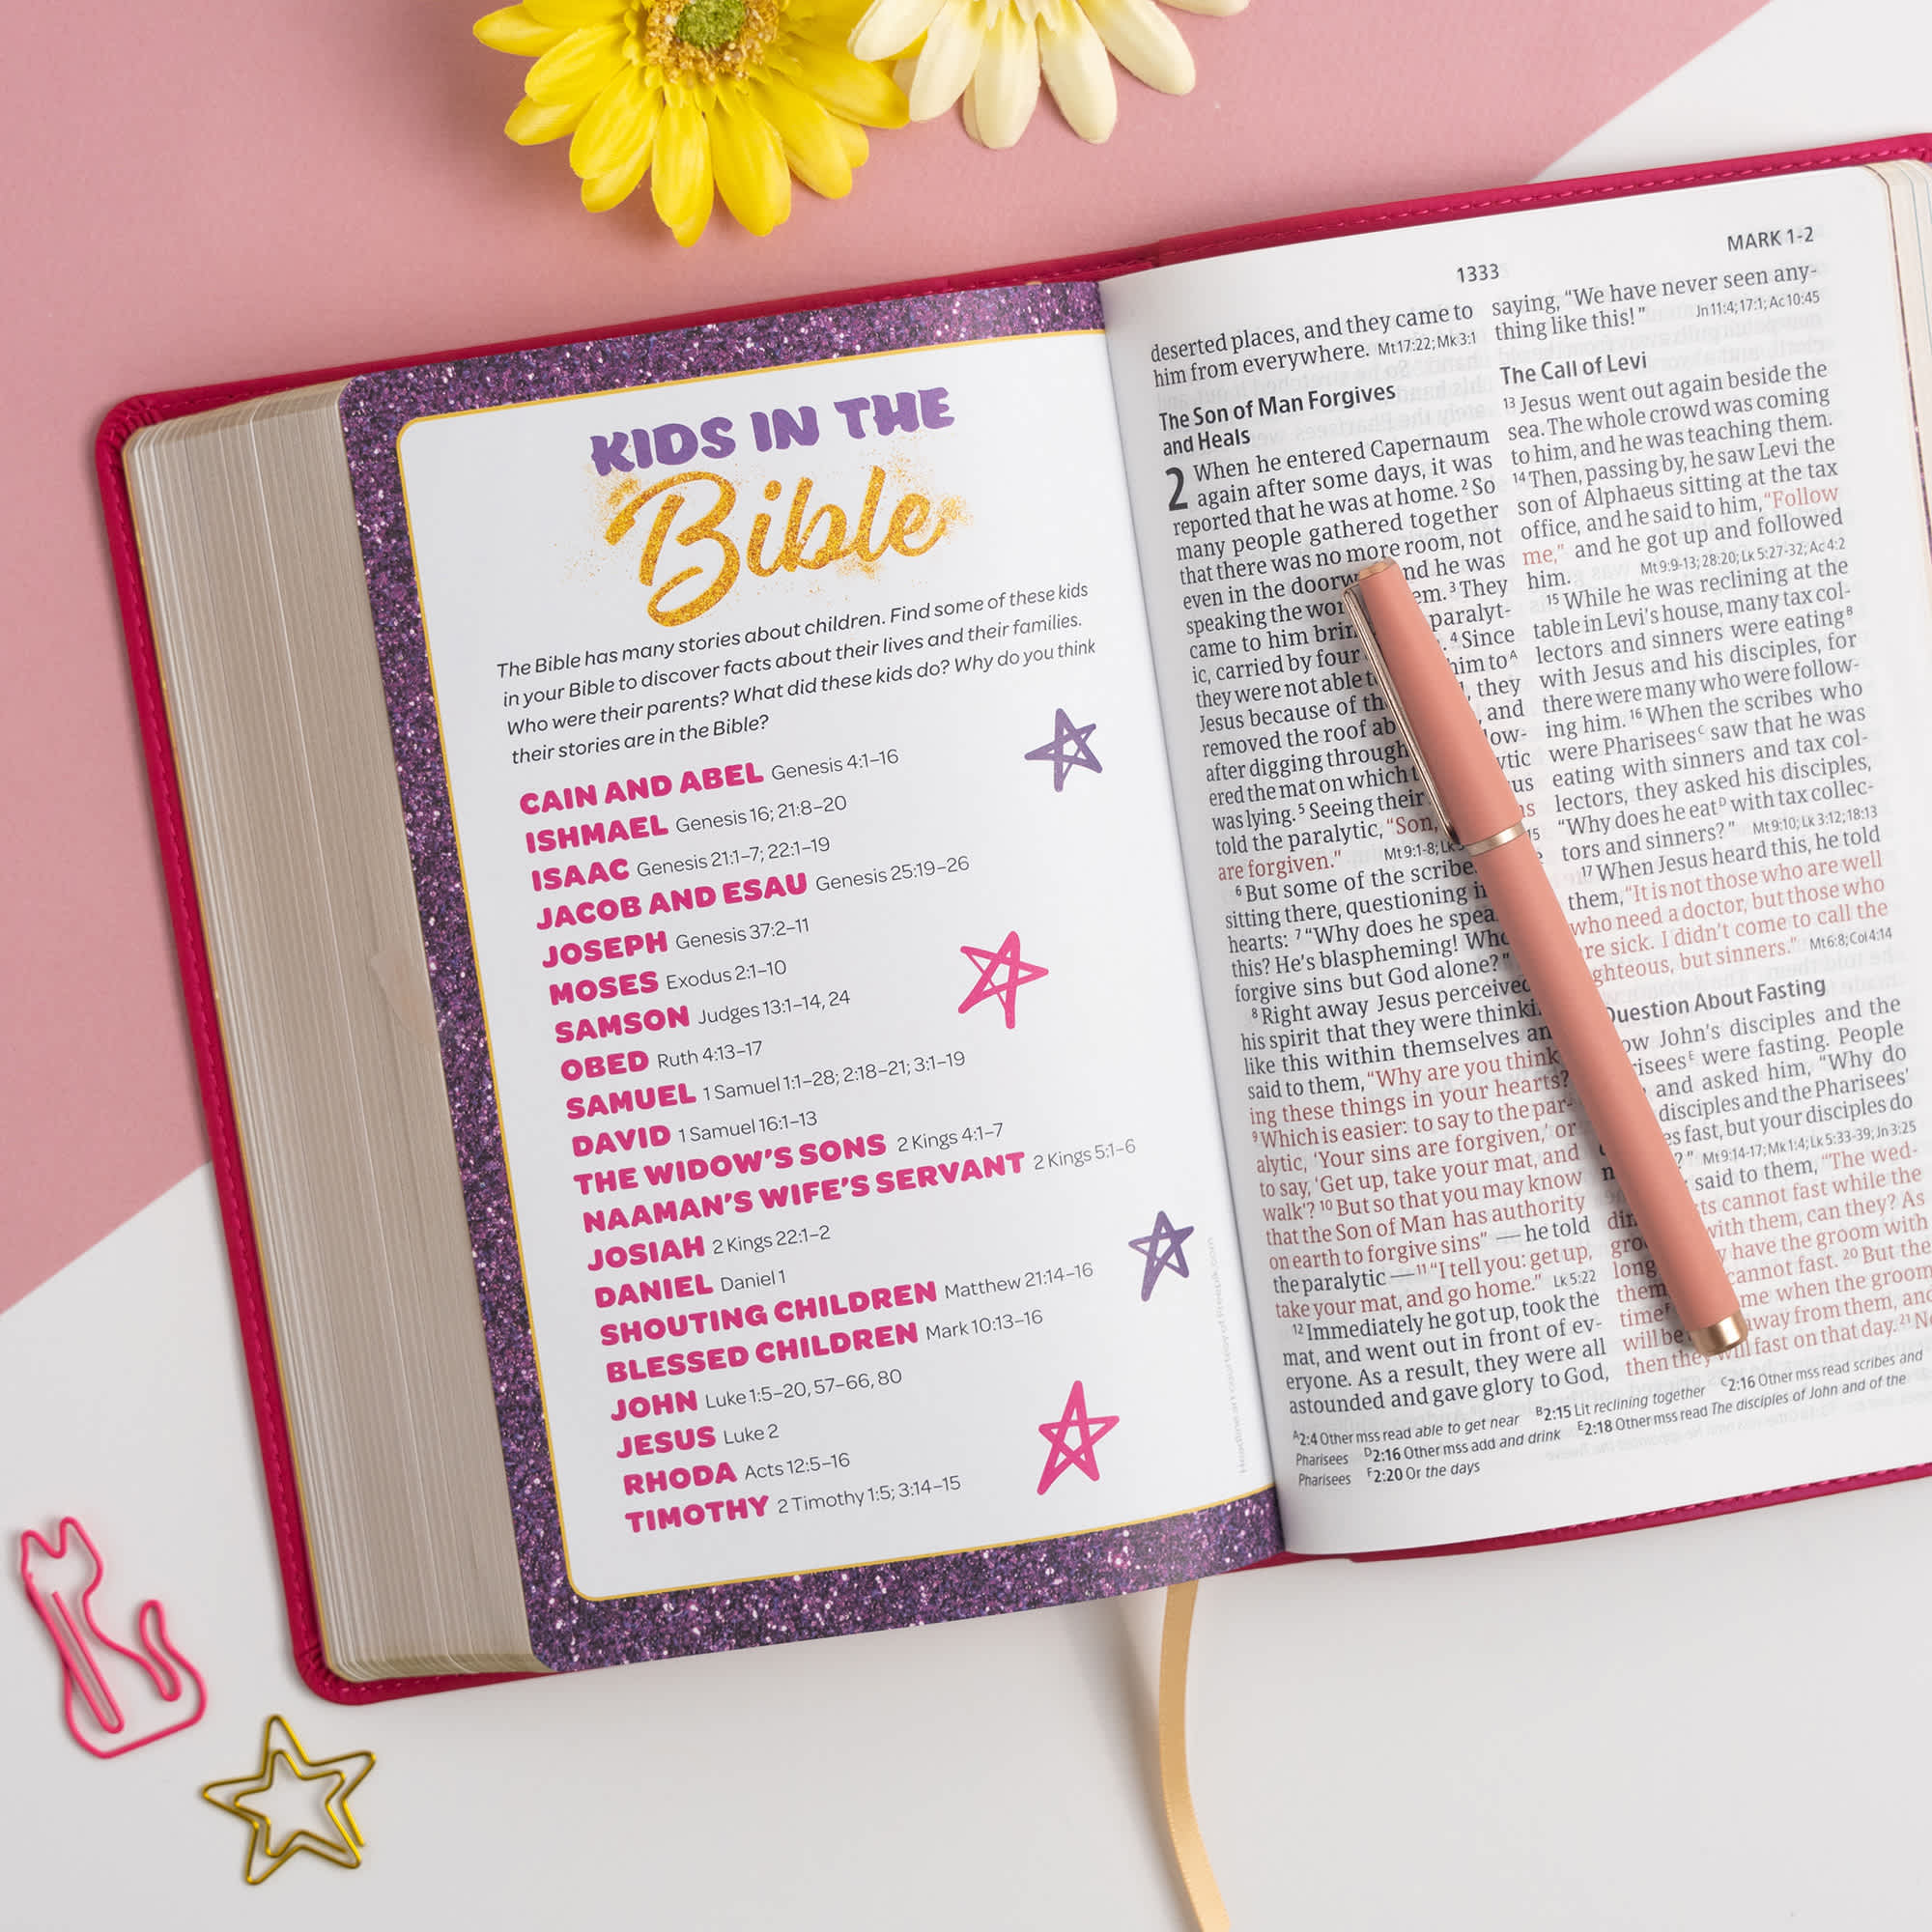 KIDS IN THE
Bible
The Bible has many stories about children. Find some of these kids
in your Bible to discover facts about their lives and their families.
Who were their parents? What did these kids do? Why do you think
their stories are in the Bible?
CAIN AND ABEL Genesis 4:1–16
ISHMAEL Genesis 16; 21:8–20
ISAAC Genesis 21:1–7; 22:1–19
JACOB AND ESAU Genesis 25:19–26
JOSEPH Genesis 37:2–11
MOSES Exodus 2:1–10
SAMSON Judges 13:1–14, 24
OBED Ruth 4:13–17
SAMUEL 1 Samuel 1:1–28; 2:18–21; 3:1–19
DAVID 1 Samuel 16:1–13
THE WIDOW'S SONS 2 Kings 4:1–7
NAAMAN'S WIFE'S SERVANT 2 Kings 5:1–6
JOSIAH 2 Kings 22:1–2
DANIEL Daniel 1
SHOUTING CHILDREN Matthew 21:14–16
BLESSED CHILDREN Mark 10:13–16
JOHN Luke 1:5–20, 57–66, 80
JESUS Luke 2
RHODA Acts 12:5–16
TIMOTHY 2 Timothy 1:5; 3:14–15
1333
MARK 1-2
deserted places, and they came to
him from everywhere. Mt 17:22; Mk 3:1
The Son of Man Forgives
and Heals
2 When he entered Capernaum
again after some days, it was
reported that he was at home. 2 So
many people gathered together
that there was no more room, not
even in the doorw nd he was
speaking the wor em. 3 They
came to him brin paralyt-
ic, carried by four . 4 Since
they were not able t him to A
Jesus because of th , they
removed the roof ab , and
after digging through low-
ered the mat on which t ytic
was lying. 5 Seeing their us
told the paralytic, "Son, ns
are forgiven." Mt 9:1-8; Lk 5
6 But some of the scribe
sitting there, questioning i
hearts: 7 "Why does he spea
this? He's blaspheming! Who
forgive sins but God alone?"
8 Right away Jesus perceived
his spirit that they were thinki
like this within themselves an
said to them, "Why are you think
ing these things in your hearts?
9 Which is easier: to say to the par-
alytic, 'Your sins are forgiven,' or
to say, 'Get up, take your mat, and
walk'? 10 But so that you may know
that the Son of Man has authority
on earth to forgive sins" — he told
the paralytic — 11 "I tell you: get up,
take your mat, and go home." Lk 5:22
12 Immediately he got up, took the
mat, and went out in front of ev-
eryone. As a result, they were all
astounded and gave glory to God,
saying, "We have never seen any-
thing like this!" Jn 11:4; 17:1; Ac 10:45
The Call of Levi
13 Jesus went out again beside the
sea. The whole crowd was coming
to him, and he was teaching them.
14 Then, passing by, he saw Levi the
son of Alphaeus sitting at the tax
office, and he said to him, "Follow
me," and he got up and followed
him. Mt 9:9-13; 28:20; Lk 5:27-32; Ac 4:2
15 While he was reclining at the
table in Levi's house, many tax col-
lectors and sinners were eating B
with Jesus and his disciples, for
there were many who were follow-
ing him. 16 When the scribes who
were Pharisees C saw that he was
eating with sinners and tax col-
lectors, they asked his disciples,
"Why does he eat D with tax collec-
tors and sinners?" Mt 9:10; Lk 3:12; 18:13
17 When Jesus heard this, he told
them, "It is not those who are well
who need a doctor, but those who
re sick. I didn't come to call the
ghteous, but sinners." Mt 6:8; Col 4:14
Question About Fasting
ow John's disciples and the
risees E were fasting. People
and asked him, "Why do
disciples and the Pharisees'
es fast, but your disciples do
?" Mt 9:14-17; Mk 1:4; Lk 5:33-39; Jn 3:25
said to them, "The wed-
ts cannot fast while the
with them, can they? As
have the groom with
cannot fast. 20 But the
time F me when the groom
will be away from them, and
then they will fast on that day. 21 N
A 2:4 Other mss read able to get near B 2:15 Lit reclining together C 2:16 Other mss read scribes and
Pharisees D 2:16 Other mss add and drink E 2:18 Other mss read The disciples of John and of the
Pharisees F 2:20 Or the days